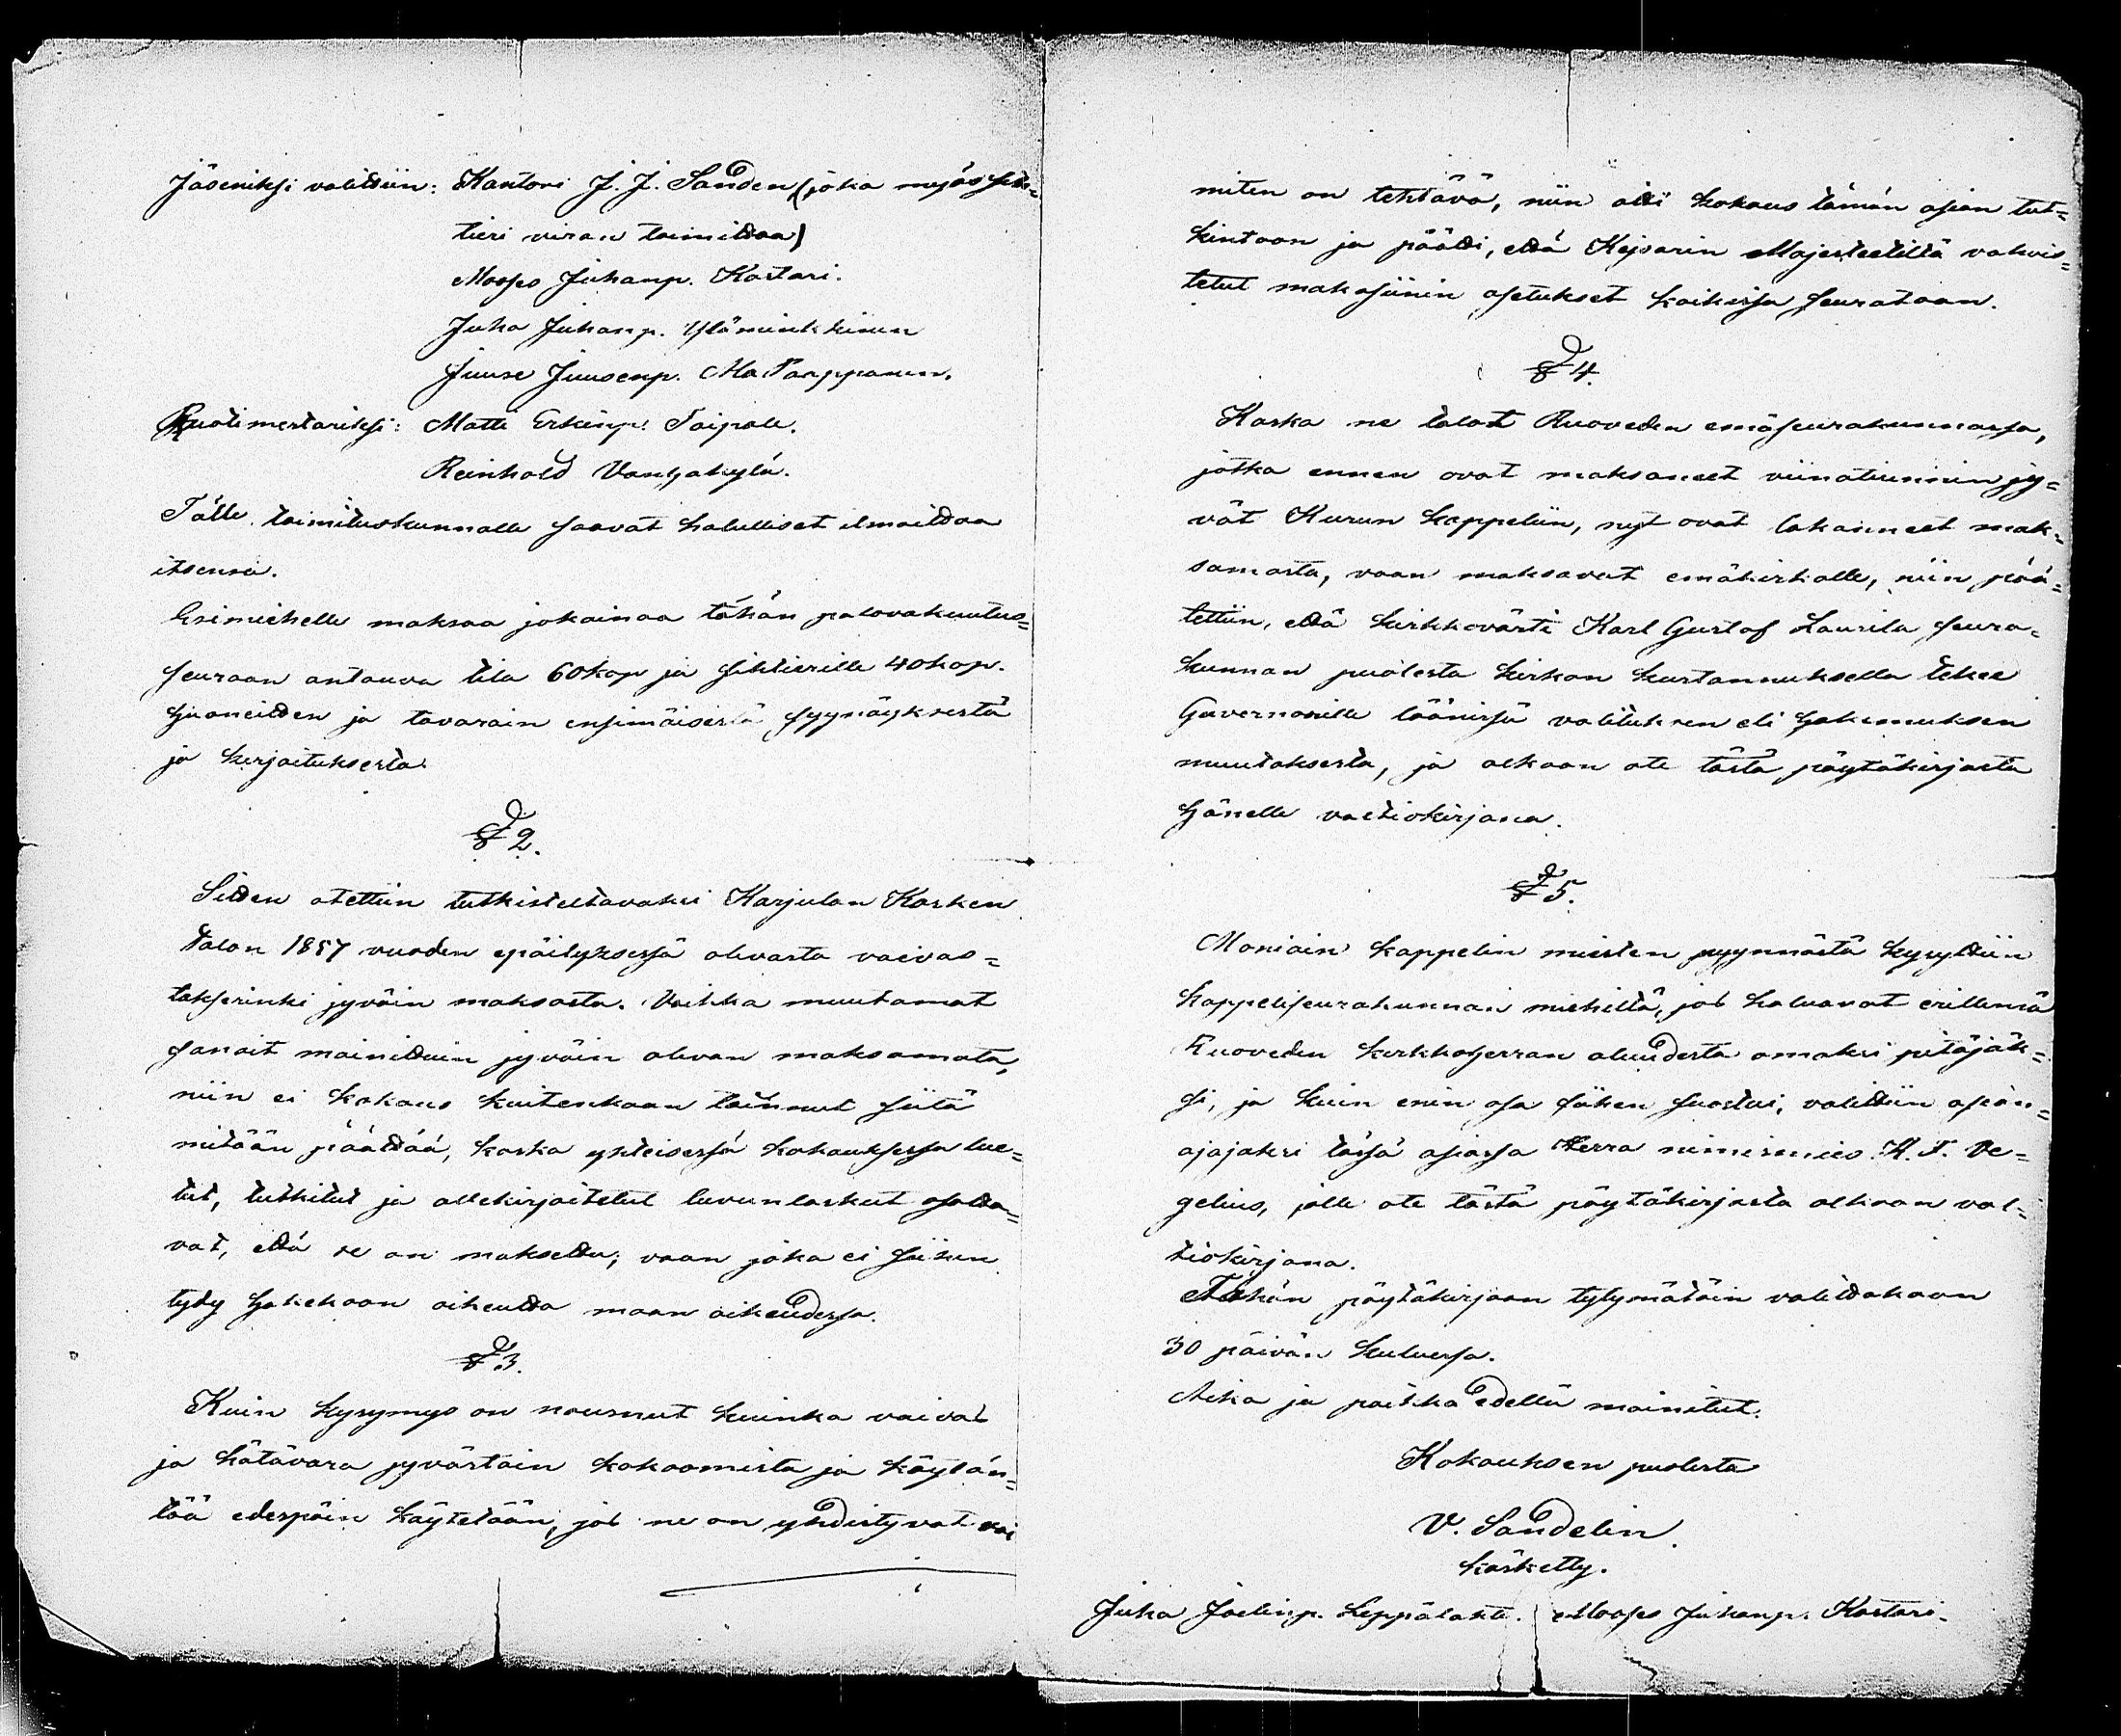 Jäseniksi valittiin: Kantori J. J. Sanden (joka myös sih=
tieri viran toimittaa)
Mooses Juhanp. Kostari.
Juha Juhanp. Yläminkkinen
Juuse Juusenp. Ala Paappanen.
Ruotimestariksi: Matti Erkinp. Taipale.
Reinhold Vanhakylä.
Tälle toimituskunnalle saavat halulliset ilmoittaa
itsensä.
Esimiehelle maksaa jokainaa tähän palovakuutus=
seuraan antauva tila 60 kop ja sihtierille 40 kop.
huoneitten ja tavarain ensimäisestä syynäyksestä
ja kirjoituksesta.
§ 2.
Sitten otettiin tutkisteltavaksi Karjulan Kosken
talon 1857 vuoden epäilyksessä olevasta vaivas=
takseerinki jyväin maksosta. Vaikka muutamat
sanoit mainittuin jyväin olevan maksamata,
niin ei kokous kuitenkaan tainnut siitä
mitään päättää, koska yhteisessä kokouksessa lue=
tut, tutkitut ja allekirjoitetut luvunlaskut osotta=
vat, että se on maksettu; vaan joka ei siihen
tydy hakekoon oikeutta maan oikeudessa.
§ 3.
Kuin kysymys on noussut kuinka vaivas
ja hätävara jyvästöin kokoomista ja käytän=
töä edespäin käytetään, jos ne on yhdistyvät vai
miten on tehtävä, niin otti kokous tämän asian tut=
kintoon ja päätti, että Keisarin Majesteetiltä vahvis=
tetut makasiinin asetukset kaikissa seurataan.
§ 4.
Koska ne talot Ruoveden emäseurakunnassa,
jotka ennen ovat maksaneet viinatiunnin jy=
vät Kurun kappeliin, nyt ovat lakanneet mak=
samasta, vaan maksavat emäkirkolle, niin pää=
tettiin, että kirkkovärti Karl Gustaf Laurila seura=
kunnan puolesta kirkon kustannuksella tekee
Guvernorille läänissä valituksen eli hakemuksen
muutoksesta, ja olkoon ote tästä pöytäkirjasta
hänelle valtiokirjana.
§ 5.
Moniain kappelin miesten pyynnöstä kysyttiin
kappeliseurakunnan miehiltä, jos haluavat erillensä
Ruoveden kirkkoherran aluudesta omaksi pitäjäk=
si, ja kuin enin osa siihen suostui, valittiin asian=
ajajaksi tässä asiassa Herra nimismies K. F. Ve=
gelius, jolle ote tästä pöytäkirjasta olkoon val=
tiokirjana.
Tähän pöytäkirjaan tytymätöin valittakoon
30 päivän kuluessa.
Aika ja paikka edellä mainitut.
Kokouksen puolesta
V. Sandelin.
käsketty.
Juha Joelinp. Leppälahti. Mooses Juhanp. Kostari.